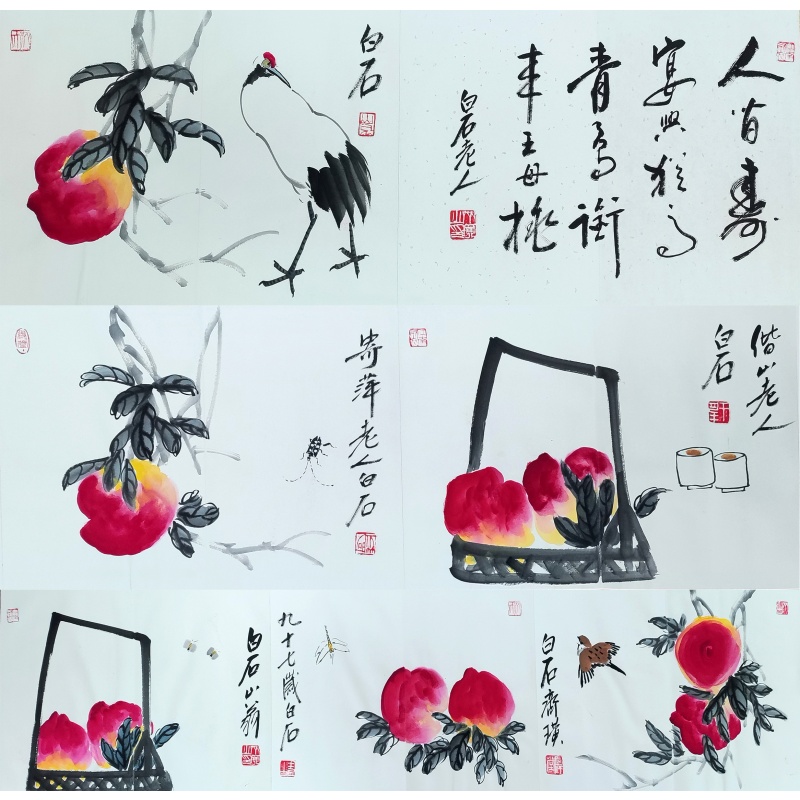 白石
人皆壽
宴興犹高
青鸟衔
来王母桃
白石老人
寄萍老人白石
借山老人
白石
白石山翁
九十七歲白石
白石齊璜